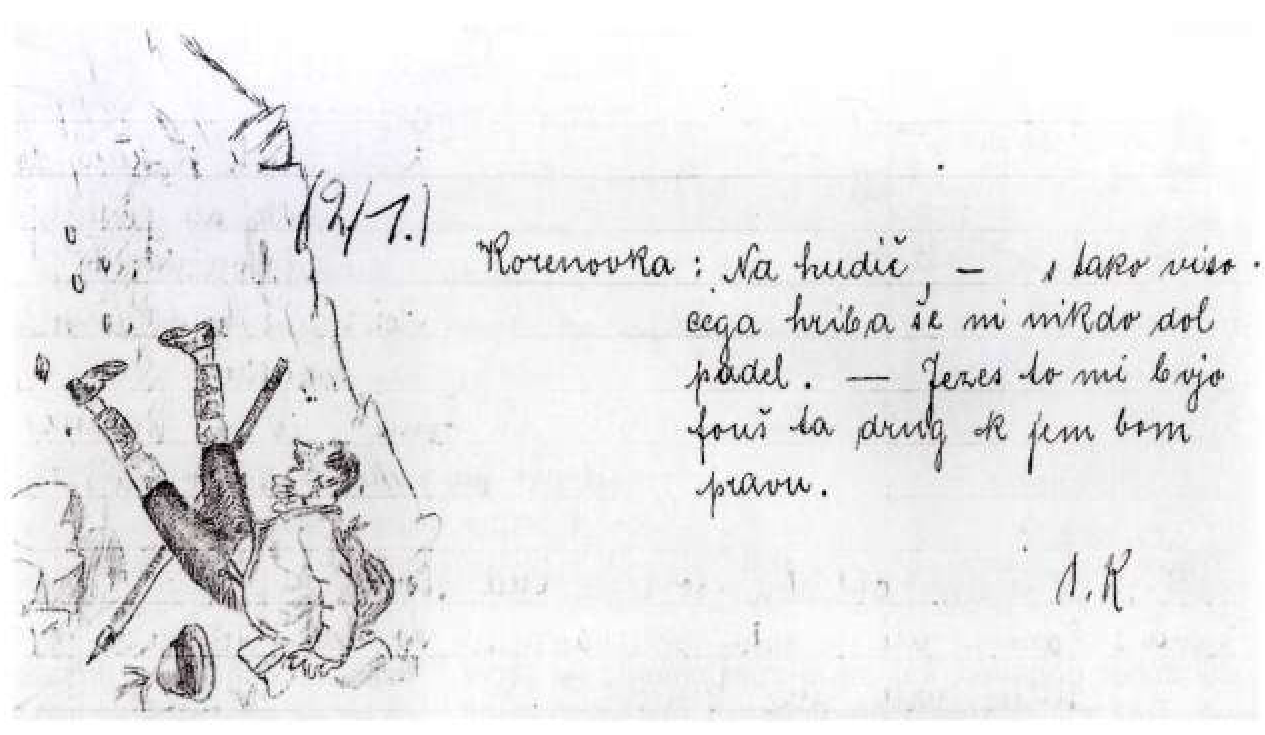 (2/1.)
Korenovka : Na hudič, — s tako viso-
cega hriba še ni nikdo dol
padel. — Jezes to mi bojo
fouš ta drug k jem bom
pravu.
1.R